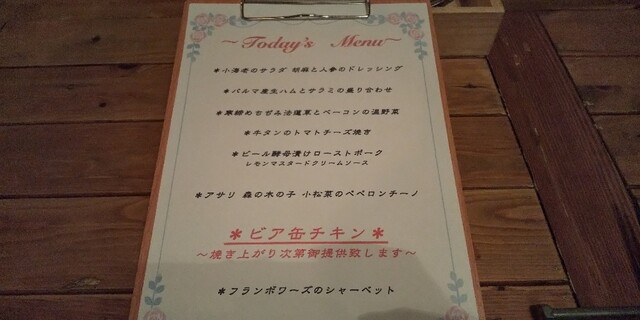 ～Today's Menu～
＊小海老のサラダ 胡麻と人参のドレッシング
＊パルマ産生ハムとサラミの盛り合わせ
＊寒締めちぢみ法蓮草とベーコンの温野菜
＊牛タンのトマトチーズ焼き
＊ビール酵母漬けローストポーク
レモンマスタードクリームソース
＊アサリ 森の木の子 小松菜のペペロンチーノ
＊ビア缶チキン＊
～焼き上がり次第御提供致します～
＊フランボワーズのシャーベット